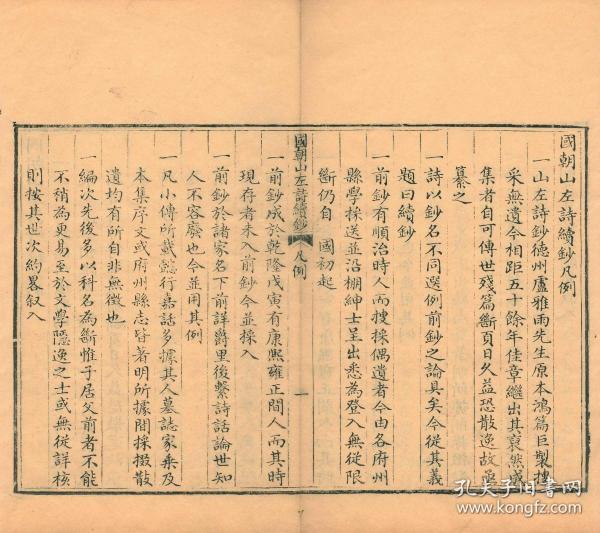 國朝山左詩續鈔凡例
一山左詩鈔德州盧雅雨先生原本鴻篇巨製搜
采無遺今相距五十餘年佳章繼出其裒然成
集者自可傳世殘篇斷頁日久益恐散逸故亟
纂之
一詩以鈔名不同選例前鈔之論具矣今從其義
題曰續鈔
一前鈔有順治時人而搜採偶遺者今由各府州
縣學採送並沿棚紳士呈出悉為登入無從限
斷仍自 國初起
國朝山左詩續鈔 凡例 一
一前鈔成於乾隆戊寅有康熙雍正間人而其時
現存者未入前鈔今並採入
一前鈔於諸家名下前詳爵里後繫詩話論世知
人不容廢也今並用其例
一凡小傳所載懿行嘉話多據其人墓誌家乘及
本集序文或府州縣志皆著明所據間採掇散
遺均有所自非無徵也
一編次先後多以科名為斷惟子居父前者不能
不稍為更易至於文學隱逸之士或無從詳核
則按其世次約畧叙入
孔夫子旧书网
www.kongfz.com